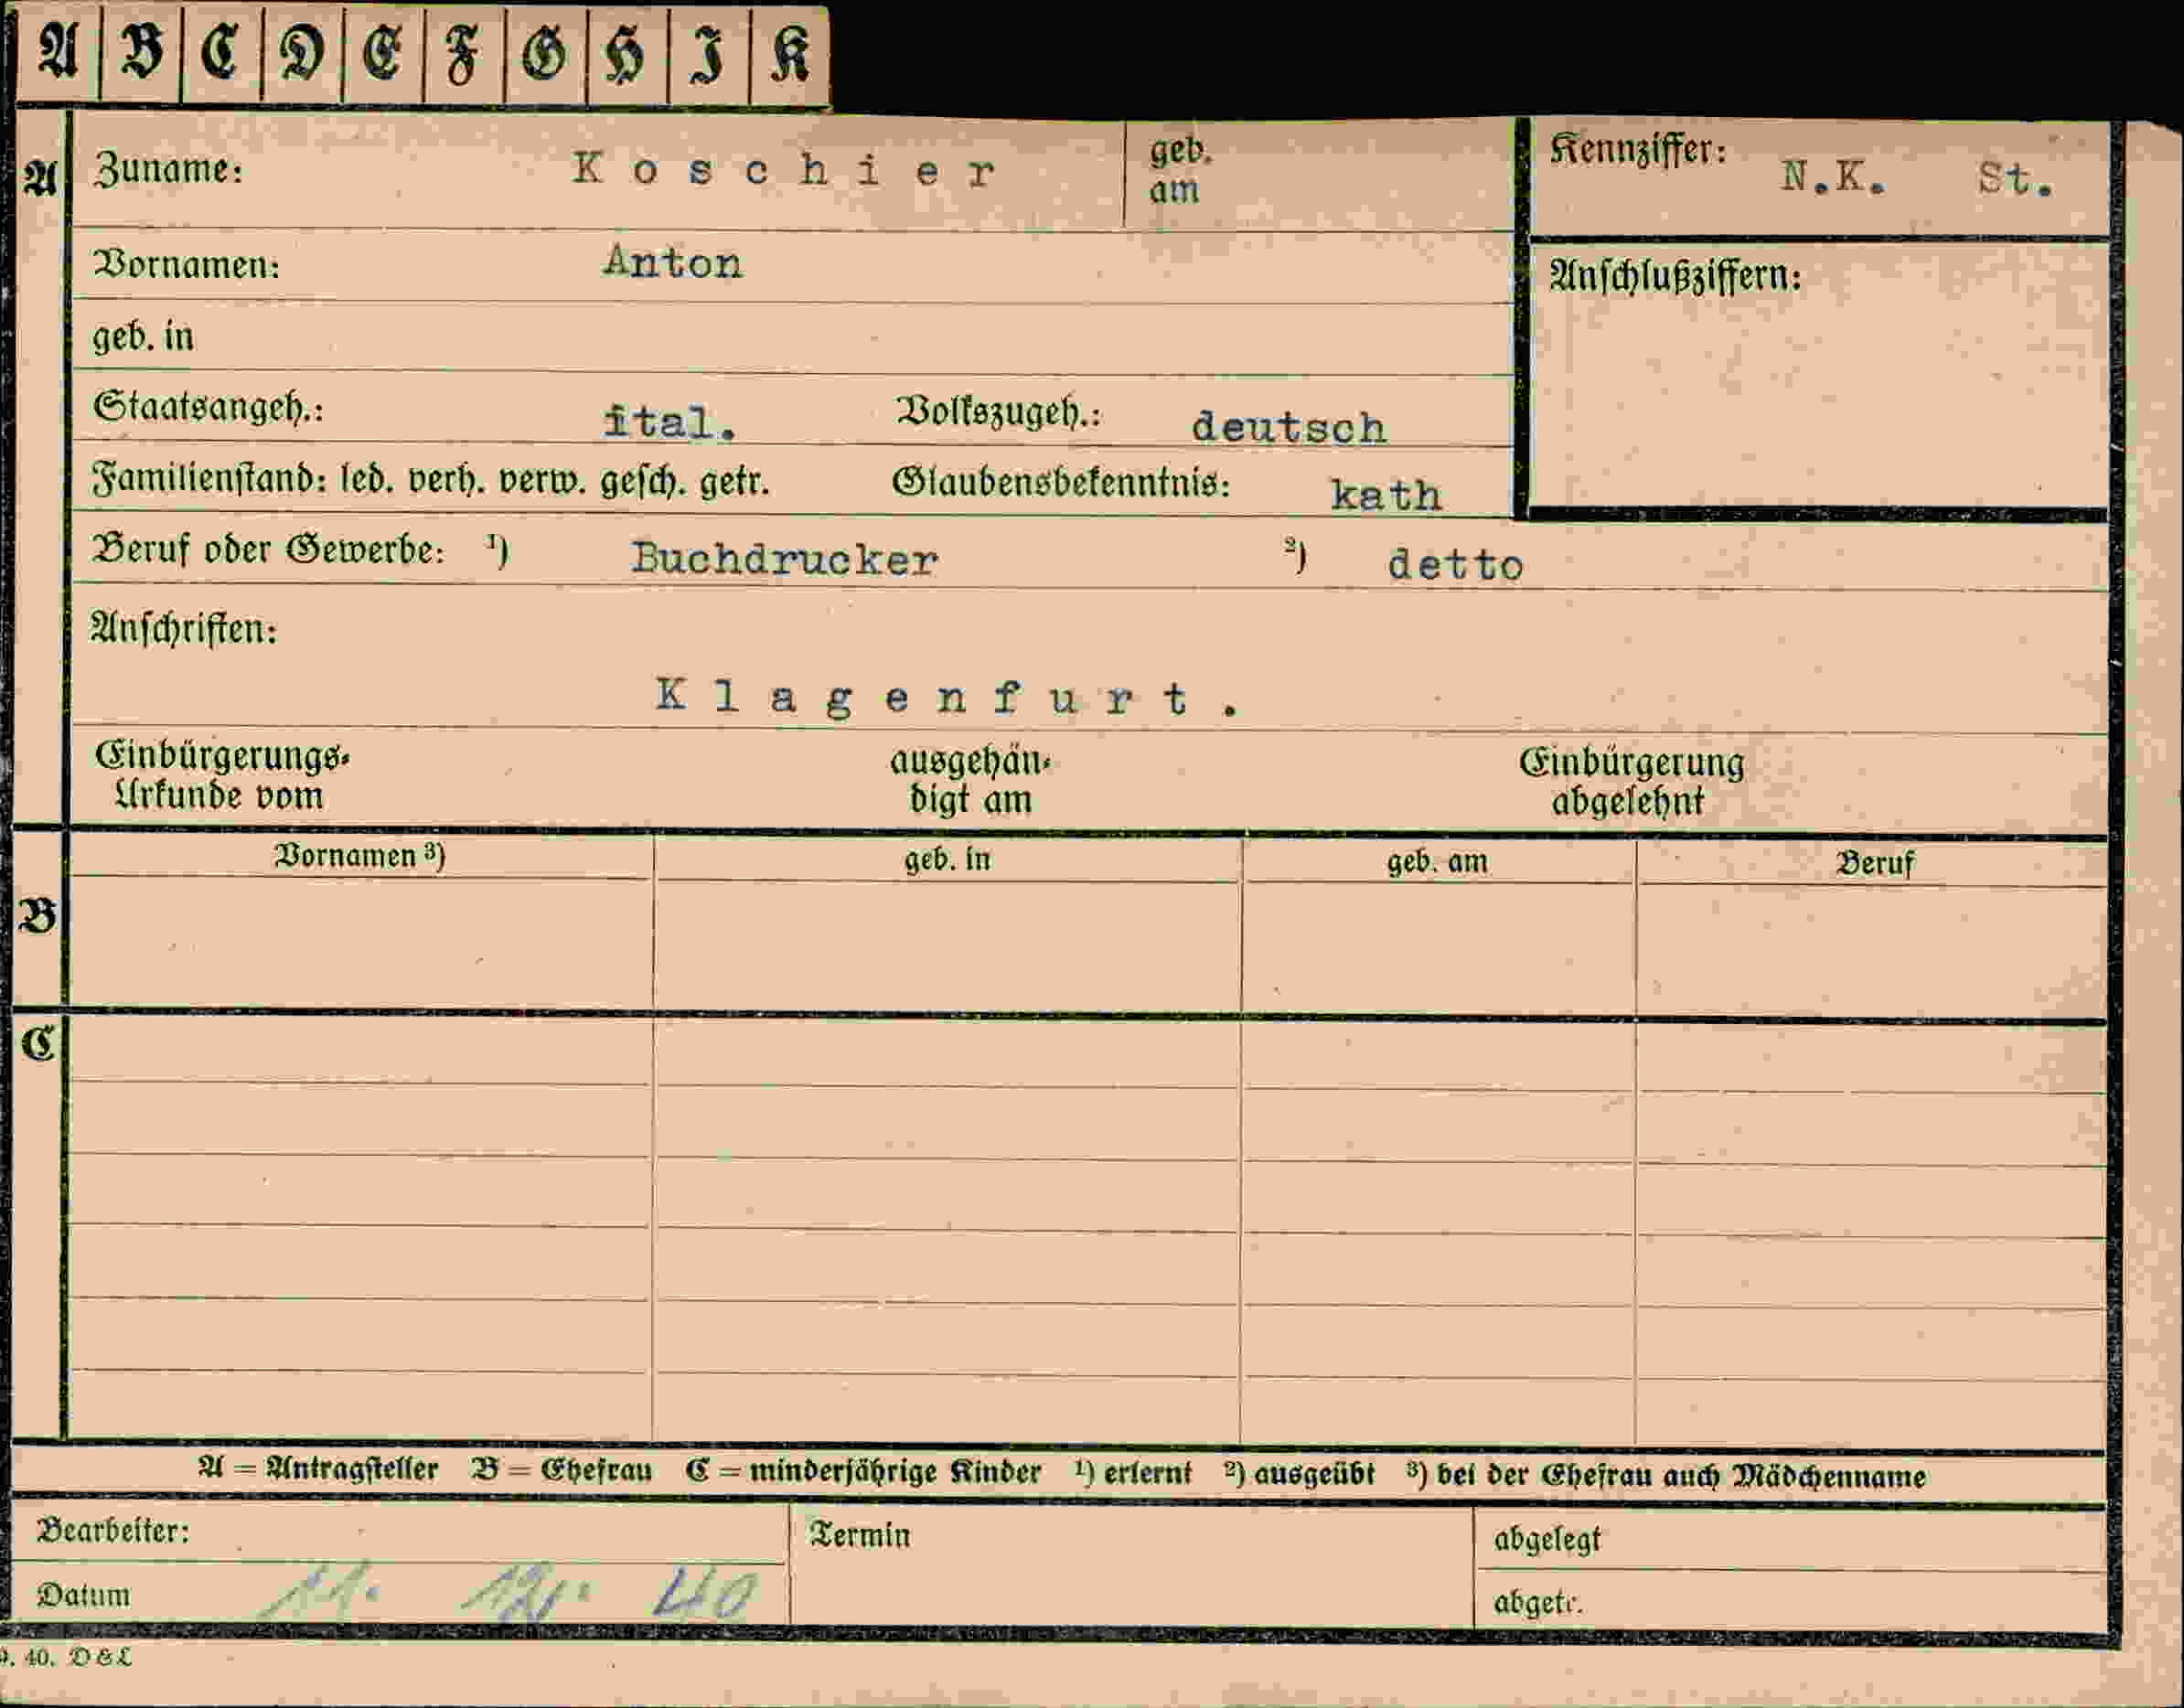 A B C D E F G H I K
A Zuname: Koschier geb. am Kennziffer: N.K. St.
Vornamen: Anton
Anschlußziffern:
geb. in
Staatsangeh.: ital. Volkszugeh.: deutsch
Familienstand: led. verh. verw. gesch. getr. Glaubensbekenntnis: kath
Beruf oder Gewerbe: ¹) Buchdrucker ²) detto
Anschriften:
Klagenfurt.
Einbürgerungs- ausgehän- Einbürgerung
Urkunde vom digt am abgelehnt
Vornamen ³) geb. in geb. am Beruf
B
C
A = Antragsteller B = Ehefrau C = minderjährige Kinder ¹) erlernt ²) ausgeübt ³) bei der Ehefrau auch Mädchenname
Bearbeiter: Termin abgelegt
Datum 11. 12. 40 abgetr.
40. D & L